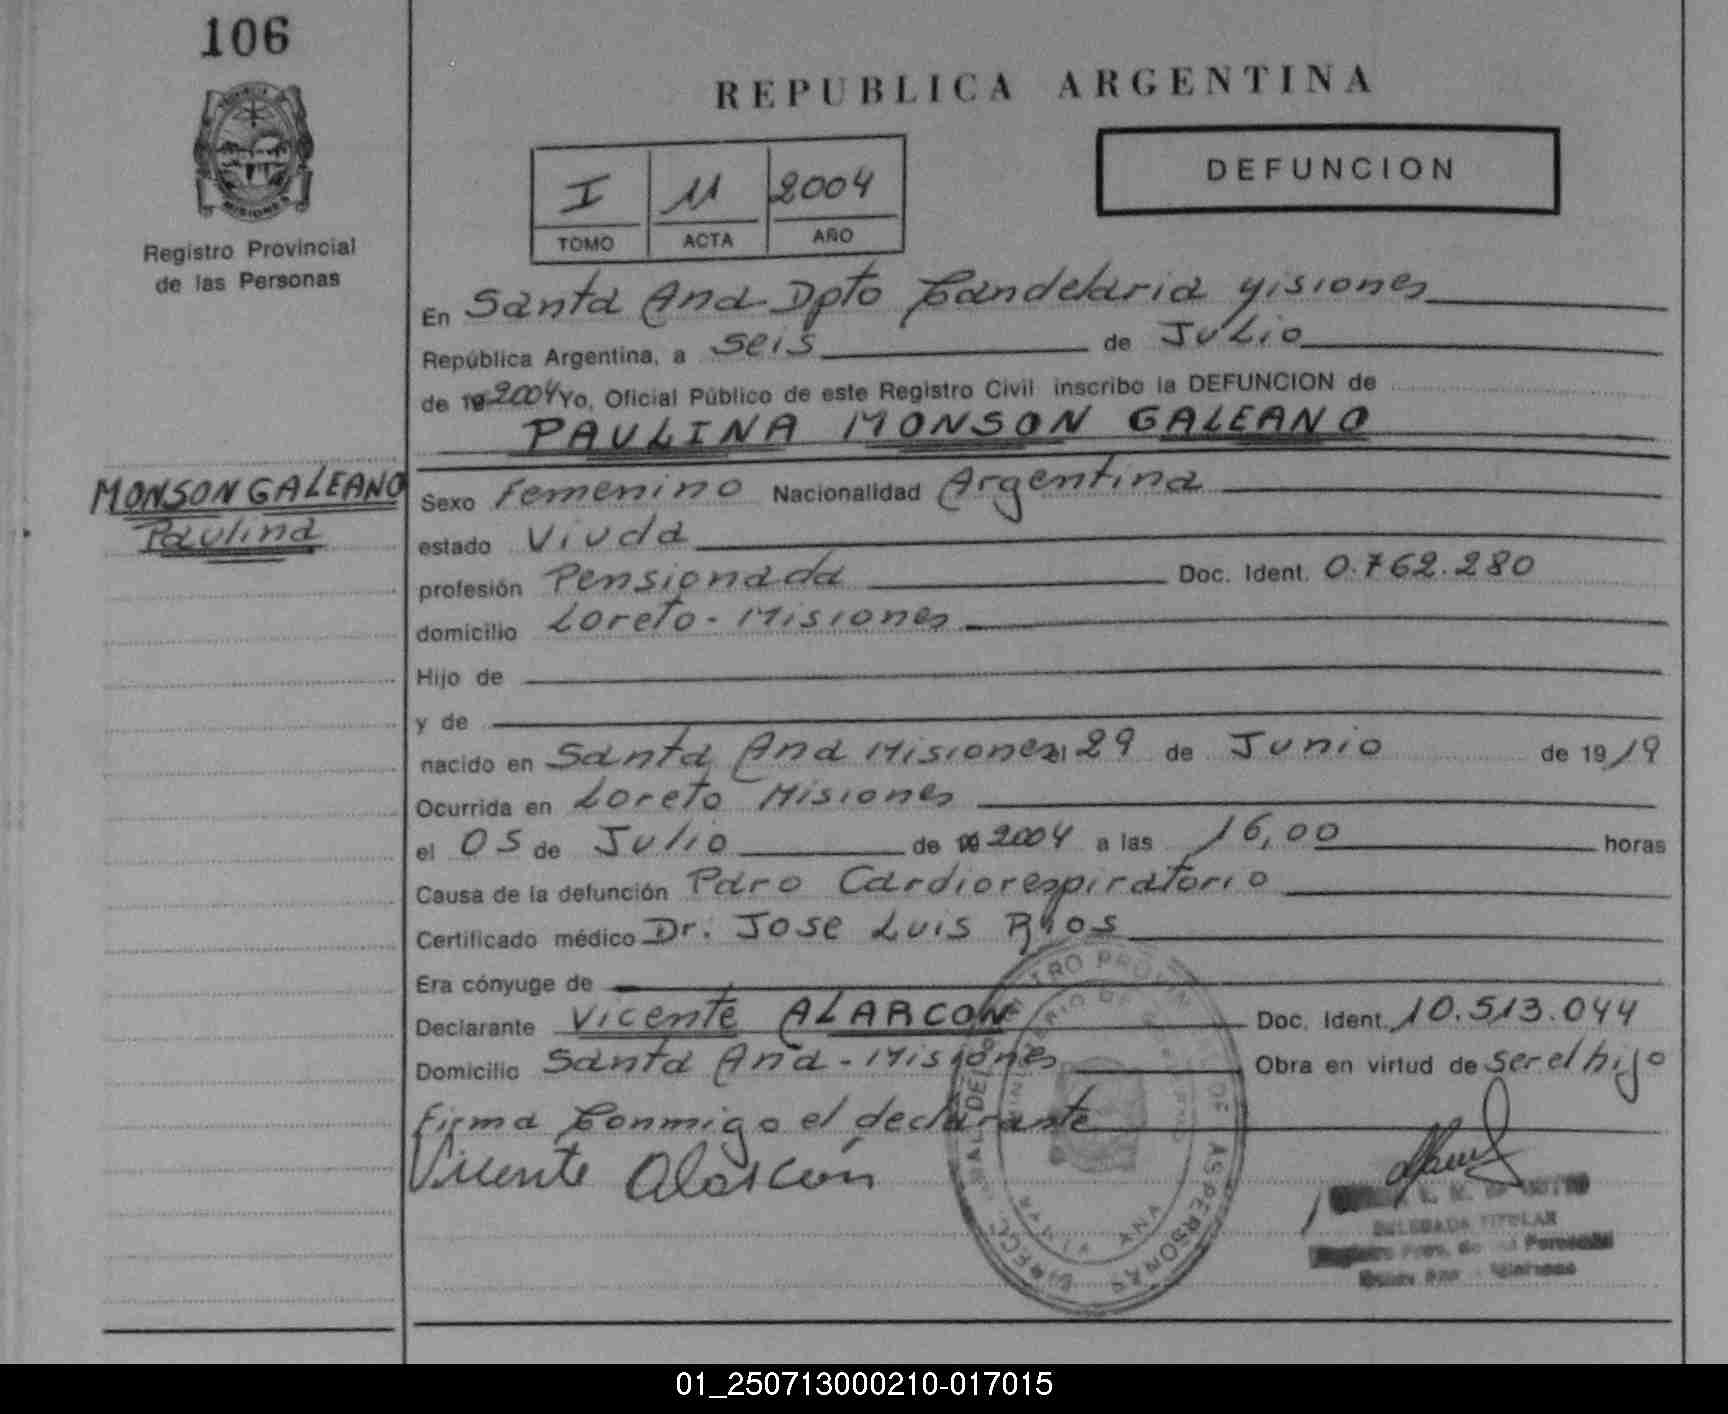 106
REPUBLICA ARGENTINA
DEFUNCION
I 11 2004
TOMO ACTA AÑO
MISIONES
Registro Provincial
de las Personas
En Santa Ana Dpto Candelaria Misiones
República Argentina, a Seis de Julio
de 19 2004 Yo, Oficial Público de este Registro Civil inscribo la DEFUNCION de
PAULINA MONSON GALEANO
MONSON GALEANO
Paulina
Sexo Femenino Nacionalidad Argentina
estado Viuda
profesión Pensionada Doc. Ident. 0.762.280
domicilio Loreto - Misiones
Hijo de
y de
nacido en Santa Ana Misiones el 29 de Junio de 1919
Ocurrida en Loreto Misiones
el 05 de Julio de 19 2004 a las 16,00 horas
Causa de la defunción Paro Cardiorespiratorio
Certificado médico Dr. Jose Luis Rios
Era cónyuge de
Declarante Vicente ALARCON Doc. Ident. 10.513.044
Domicilio Santa Ana - Misiones Obra en virtud de ser el hijo
Firma Conmigo el declarante
Vicente Alarcón
DELEGADA TITULAR
01_250713000210-017015